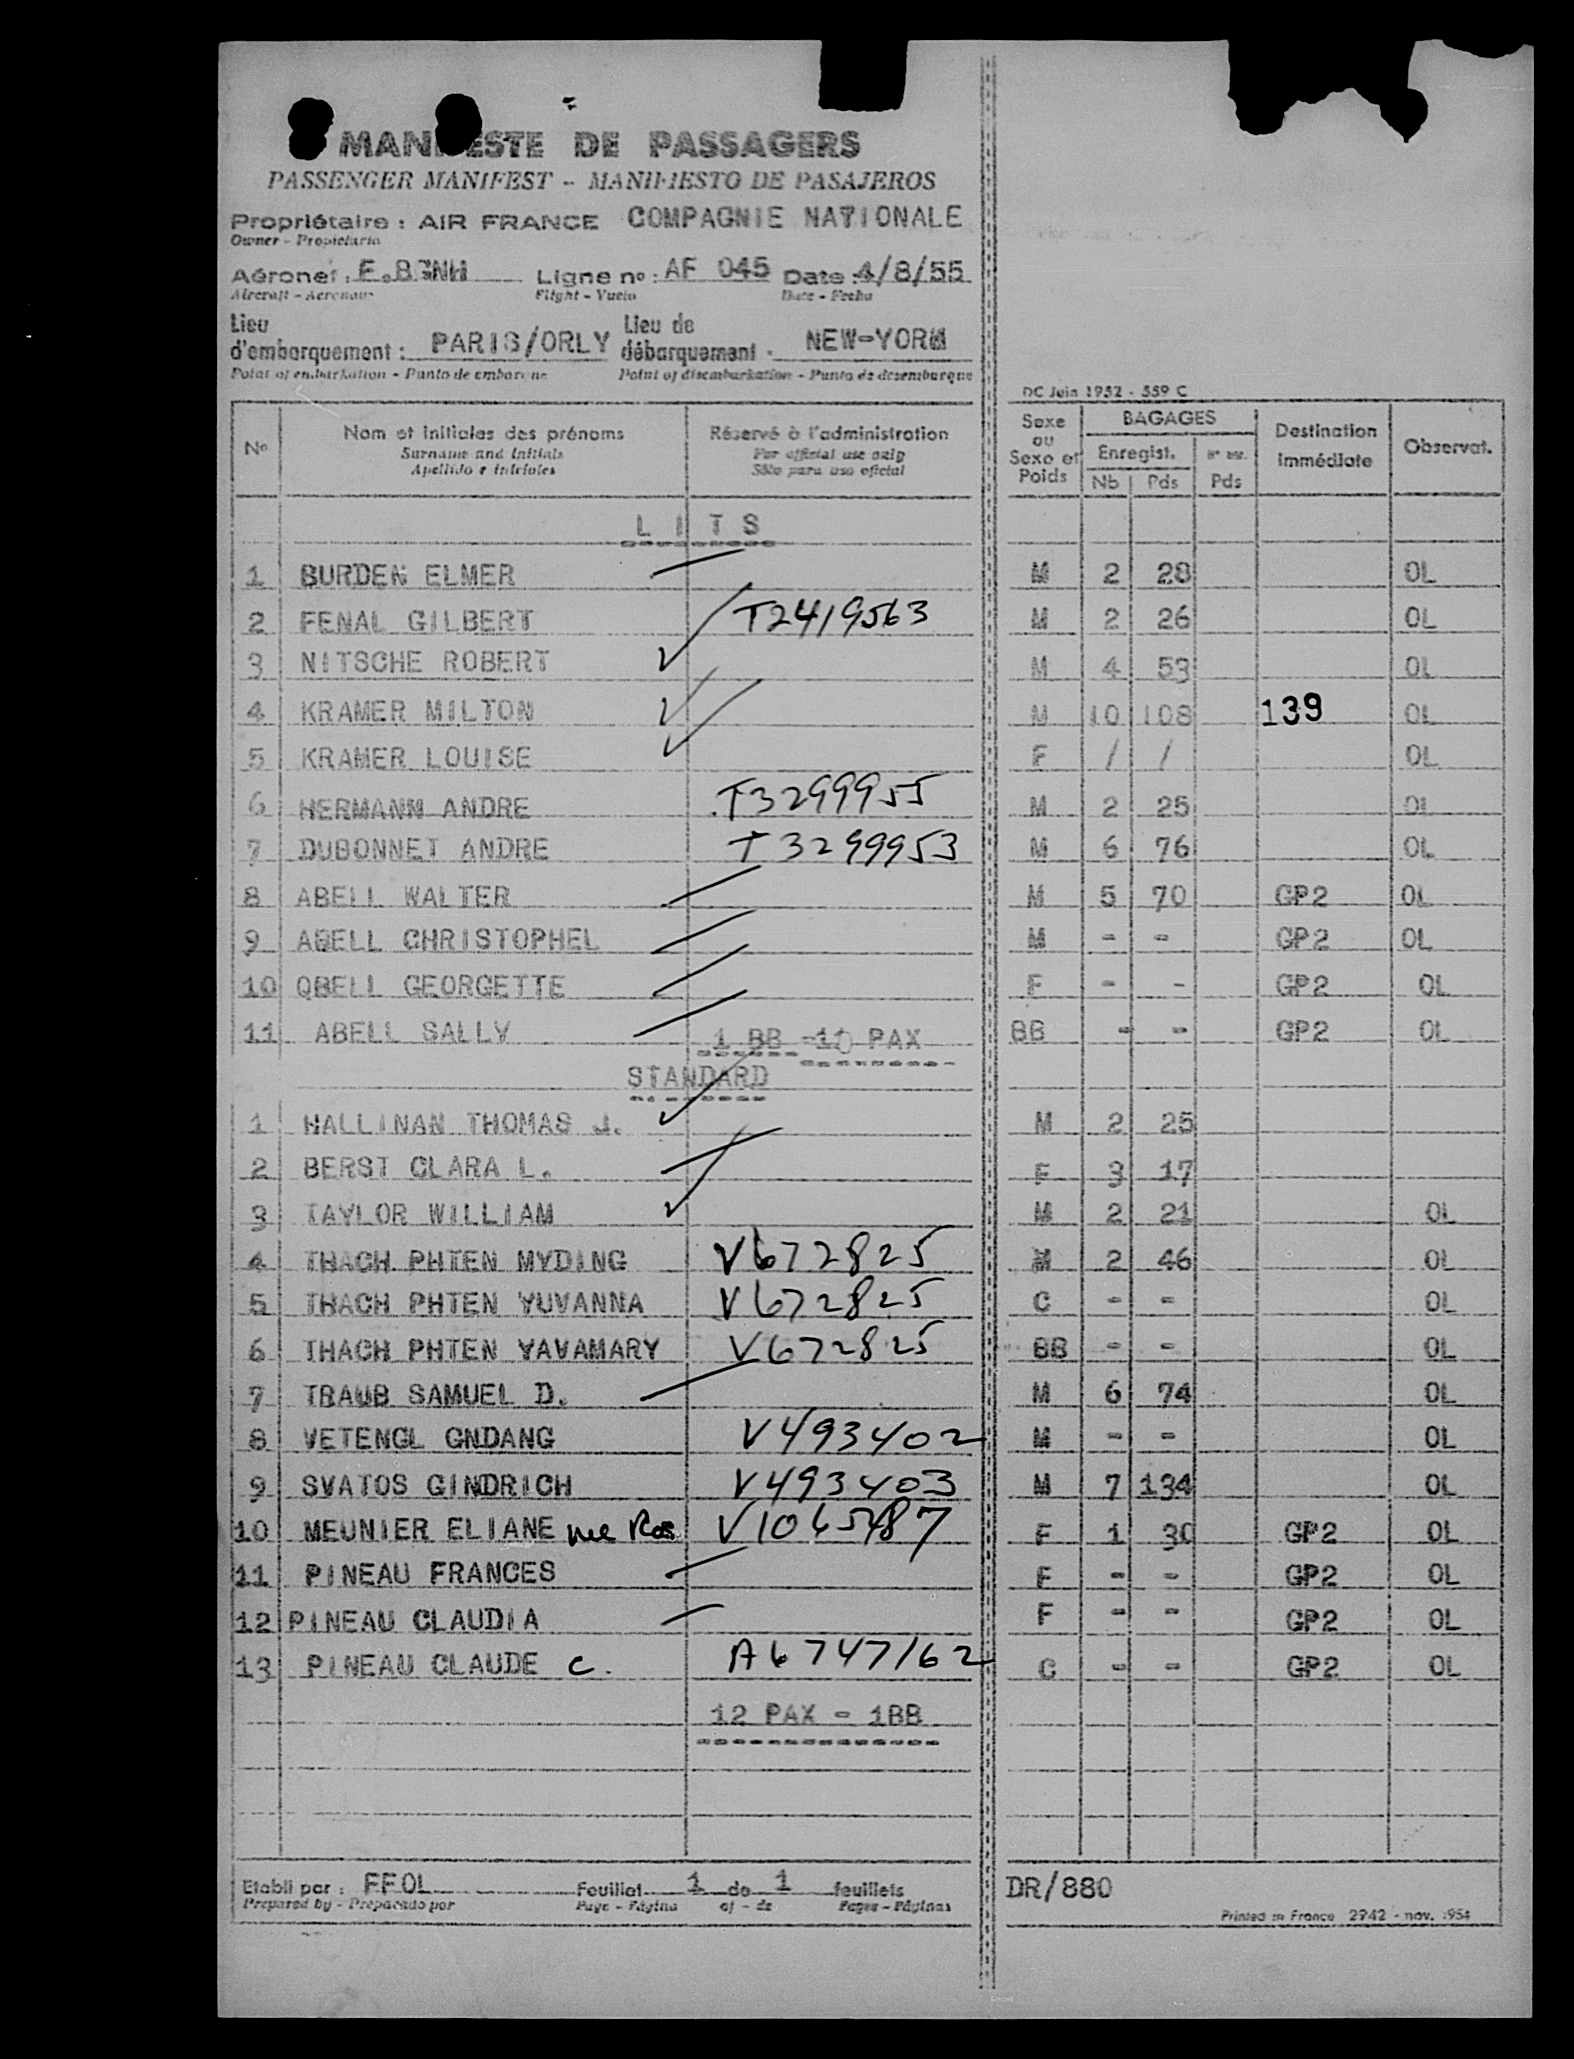 MANIFESTE DE PASSAGERS
PASSENGER MANIFEST - MANIFIESTO DE PASAJEROS
Propriétaire : AIR FRANCE COMPAGNIE NATIONALE
Owner - Propietario
Aéronef : F.BGNH Ligne nº : AF 045 Date : 4/8/55
Aircraft - Aeronave Flight - Vuelo Date - Fecha
Lieu d'embarquement : PARIS/ORLY Lieu de débarquement : NEW-YORK
Point of embarkation - Punto de embarque Point of disembarkation - Punto de desembarque
DC Juin 1952 - 559 C
Nº Nom et initiales des prénoms Réservé à l'administration Sexe ou Sexe et Poids BAGAGES Destination immédiate Observat.
Surname and initials For official use only Enregist.
Apellido e iniciales Sólo para uso oficial Nb Pds Pds
LITS
1 BURDEN ELMER M 2 28 OL
2 FENAL GILBERT T2419563 M 2 26 OL
3 NITSCHE ROBERT M 4 53 OL
4 KRAMER MILTON M 10 108 139 OL
5 KRAMER LOUISE F / / OL
6 HERMANN ANDRE T3299955 M 2 25 OL
7 DUBONNET ANDRE T3299953 M 6 76 OL
8 ABELL WALTER M 5 70 GP2 OL
9 ABELL CHRISTOPHEL M - - GP2 OL
10 QBELL GEORGETTE F - - GP2 OL
11 ABELL SALLY BB - - GP2 OL
1 BB -10 PAX
STANDARD
1 HALLINAN THOMAS J. M 2 25
2 BERST CLARA L. F 3 17
3 TAYLOR WILLIAM M 2 21 OL
4 THACH PHTEN MYDING V672825 M 2 46 OL
5 THACH PHTEN YUVANNA V672825 C - - OL
6 THACH PHTEN YAVAMARY V672825 BB - - OL
7 TRAUB SAMUEL D. M 6 74 OL
8 VETENGL GNDANG V493402 M - - OL
9 SVATOS GINDRICH V493403 M 7 134 OL
10 MEUNIER ELIANE V1065487 F 1 30 GP2 OL
11 PINEAU FRANCES F - - GP2 OL
12 PINEAU CLAUDIA F - - GP2 OL
13 PINEAU CLAUDE C. A6747162 C - - GP2 OL
12 PAX - 1BB
Etabli par : FFOL Feuillet 1 de 1 feuillets DR/880
Prepared by - Preparado por Page - Página of - de Pages - Páginas
Printed in France 2942 - nov. 1954